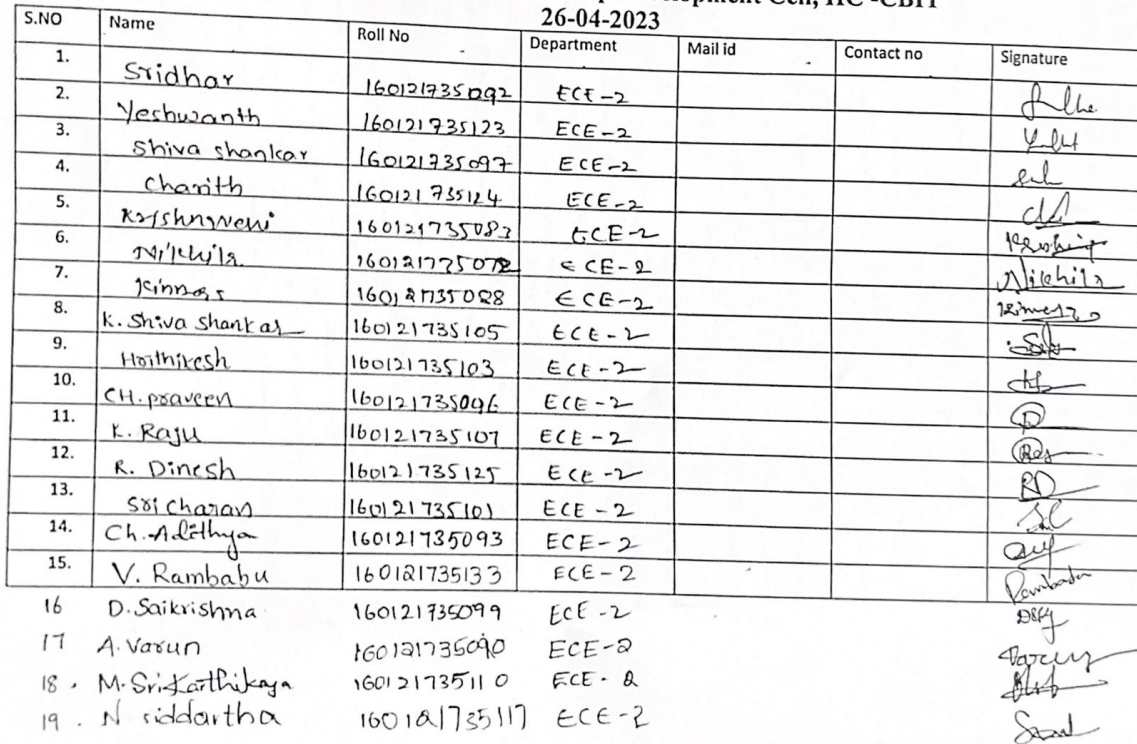 26-04-2023
S.NO Name Roll No Department Mail id Contact no Signature
1. Sridhar 160121735092 ECE-2
2. Yeshwanth 160121735123 ECE-2
3. Shiva shankar 160121735097 ECE-2
4. Charith 160121735124 ECE-2
5. Krishnaveni 160121735083 ECE-2
6. Nikhila 160121735078 ECE-2 Nikhila
7. 160121735088 ECE-2
8. K. Shiva Shankar 160121735105 ECE-2
9. Hrithikesh 160121735103 ECE-2
10. CH. praveen 160121735096 ECE-2
11. K. Raju 160121735107 ECE-2
12. R. Dinesh 160121735125 ECE-2 RD
13. Sri Charan 160121735101 ECE-2
14. Ch. Adithya 160121735093 ECE-2
15. V. Rambabu 160121735133 ECE-2 Rambabu
16 D. Saikrishna 160121735099 ECE-2
17 A. Varun 160121735090 ECE-2 Varun
18. M. Sri Karthikeya 160121735110 ECE-2
19. N siddartha 160121735117 ECE-2